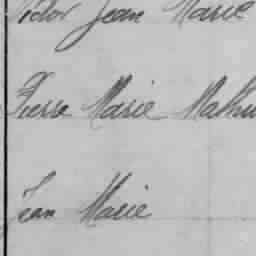 Victor Jean Marie
Pierre Marie Mathu
Jean Marie